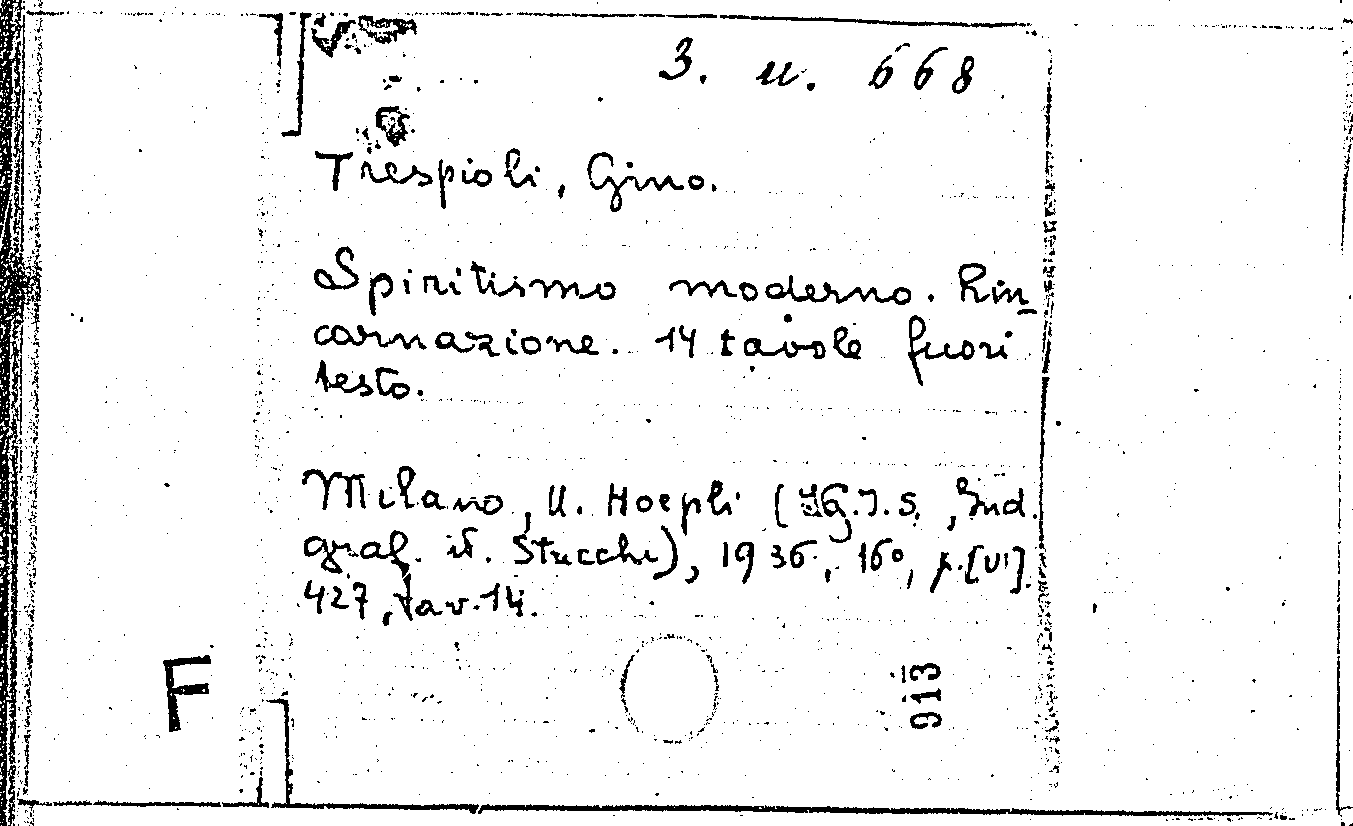 3. u. 668
Trespioli, Gino.
Spiritismo moderno. Rin
carnazione. 14 tavole fuori
testo.
Milano, U. Hoepli (I.G.I.S., Ind.
graf. it. Stucchi), 1936, 16°, p. [VI].
427, tav. 14.
F
913